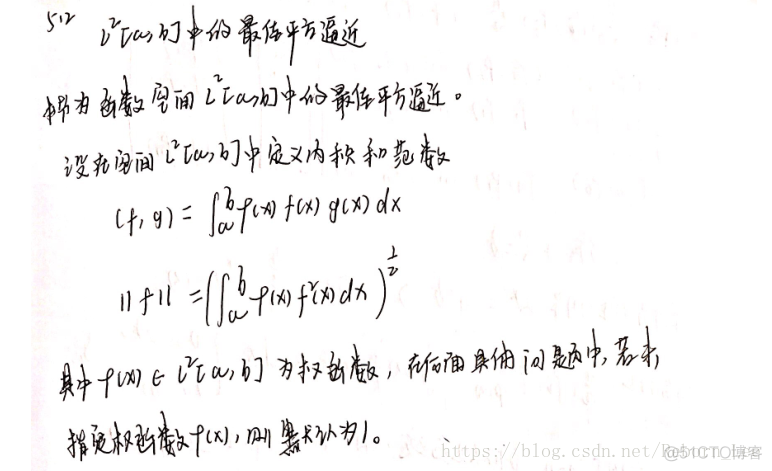 5.2 L²[a,b]中的最佳平方逼近
称为函数空间L²[a,b]中的最佳平方逼近。
设在空间L²[a,b]中定义内积和范数
(f,g) = ∫ₐᵇ ρ(x) f(x) g(x) dx
||f|| = (∫ₐᵇ ρ(x) f²(x) dx)^½
其中ρ(x) ∈ L²[a,b] 为权函数，在后面具体问题中，若未
指定权函数ρ(x)，则默认为1。
https://blog.csdn.net/
@51CTO博客